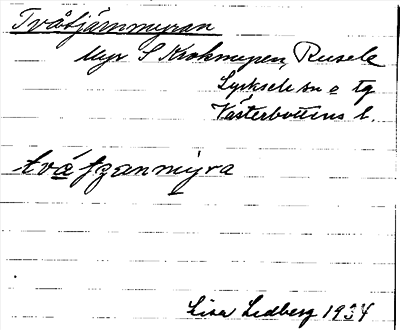 Tvåtjärnmyran
Myr S Krokmyren, Rusele
Lycksele sn o tg
Västerbottens l.
två tjanmyra
Lisa Lidberg 1934